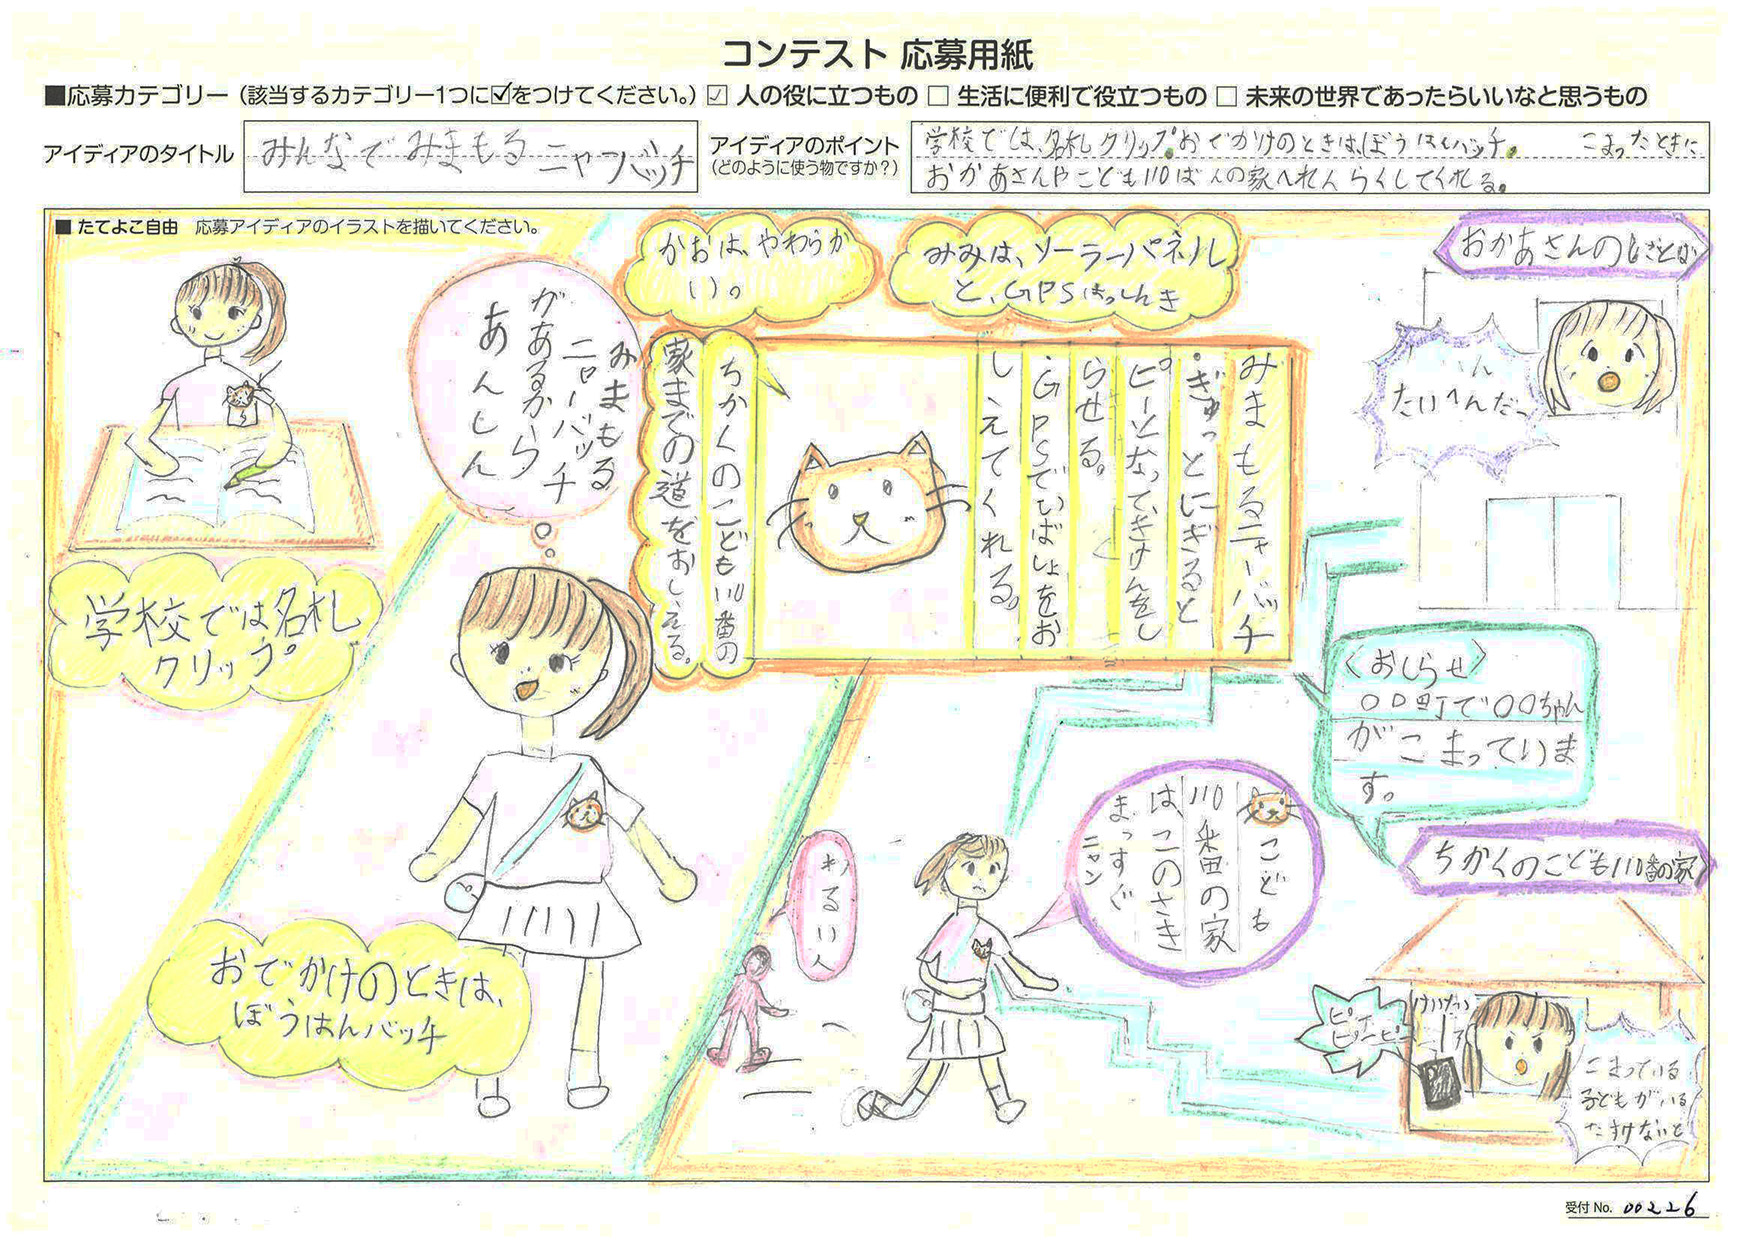 コンテスト 応募用紙
■応募カテゴリー（該当するカテゴリー1つに☑をつけてください。）☑ 人の役に立つもの □ 生活に便利で役立つもの □ 未来の世界であったらいいなと思うもの
アイディアのタイトル
みんなでみまもるニャーバッチ
アイディアのポイント
（どのように使う物ですか？）
学校では、名札クリップ。おでかけのときは、ぼうはんバッチ。 こまったときに、
おかあさんやこども110ばんの家へれんらくしてくれる。
■ たてよこ自由 応募アイディアのイラストを描いてください。
学校では名札
クリップ。
みまもる
ニャーバッチ
があるから
あんしん
おでかけのときは、
ぼうはんバッチ
かおは、やわらか
い。
みみは、ソーラーパネル
と、GPSはっしんき
みまもるニャーバッチ
・ぎゅっとにぎると
ピーとなってきけんをし
らせる。
・GPSでいばしょをお
しえてくれる。
ちかくのこども110番の
家までの道をおしえる。
おかあさんのしごとば
たいへんだっ
〈おしらせ〉
○○町で○○ちゃん
がこまっていま
す。
わるい人
こども
110番の家
は、このさき
まっすぐ
ニャン
ちかくのこども110番の家
けいたい
こまっている
子どもがいる
たすけないと
受付 No. 00226